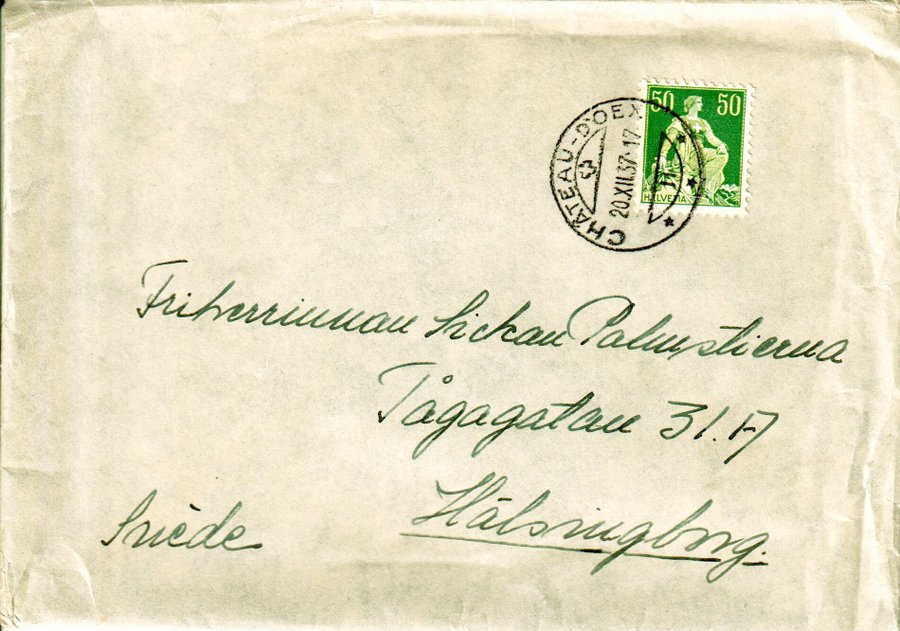 50 50
HELVETIA
CHÂTEAU-D'OEX
20.XII.37-17
Friherrinnan Sickan Palmstierna
Tågagatan 31.A
Hälsingborg.
Suède